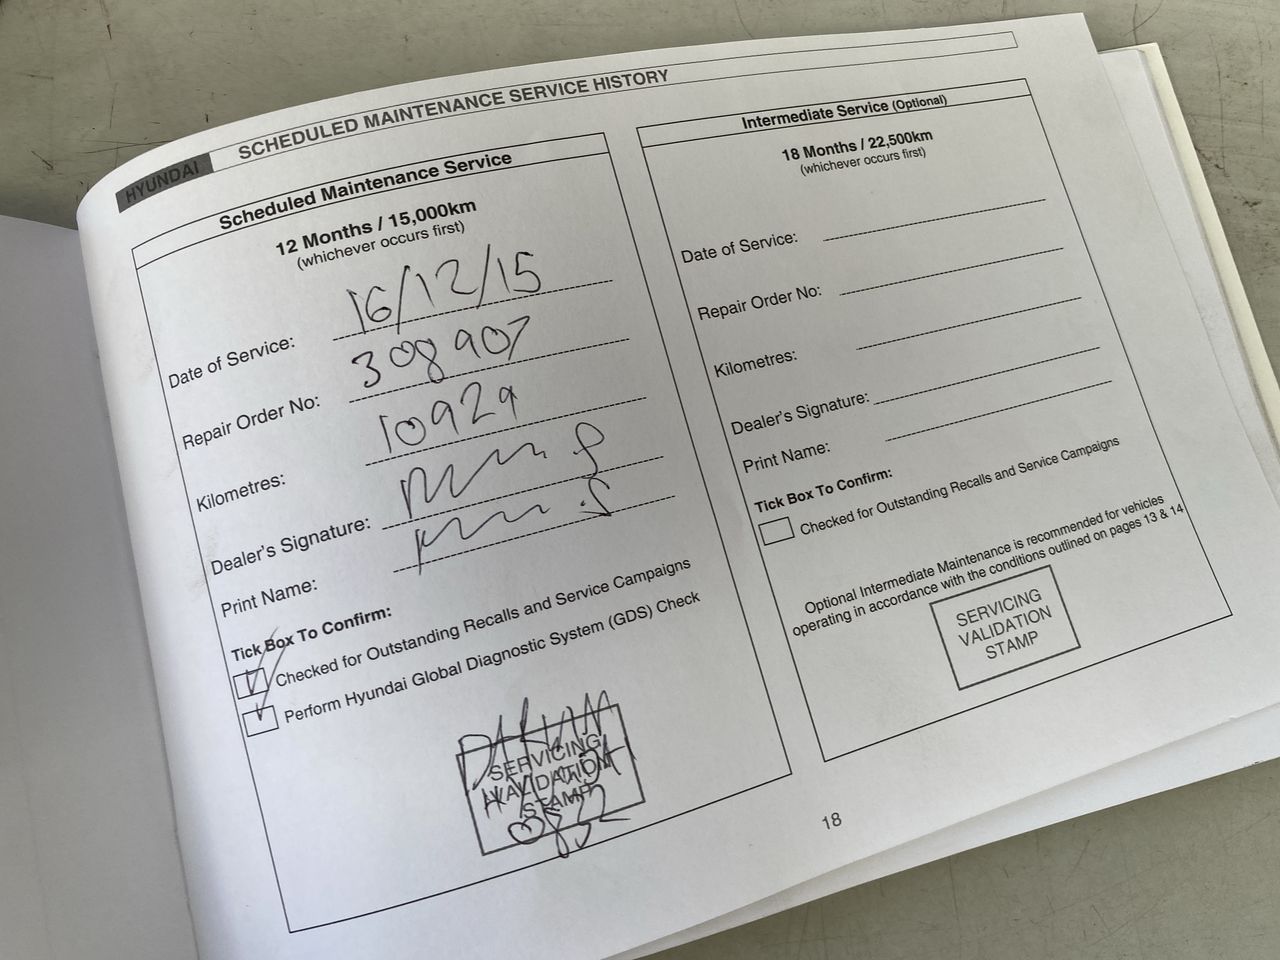 HYUNDAI
SCHEDULED MAINTENANCE SERVICE HISTORY
Scheduled Maintenance Service
12 Months / 15,000km
(whichever occurs first)
Date of Service: 16/12/15
Repair Order No: 308907
Kilometres: 10929
Dealer's Signature:
Print Name:
Tick Box To Confirm:
Checked for Outstanding Recalls and Service Campaigns
Perform Hyundai Global Diagnostic System (GDS) Check
SERVICING
VALIDATION
STAMP
Intermediate Service (Optional)
18 Months / 22,500km
(whichever occurs first)
Date of Service:
Repair Order No:
Kilometres:
Dealer's Signature:
Print Name:
Tick Box To Confirm:
Checked for Outstanding Recalls and Service Campaigns
Optional Intermediate Maintenance is recommended for vehicles
operating in accordance with the conditions outlined on pages 13 & 14
SERVICING
VALIDATION
STAMP
18